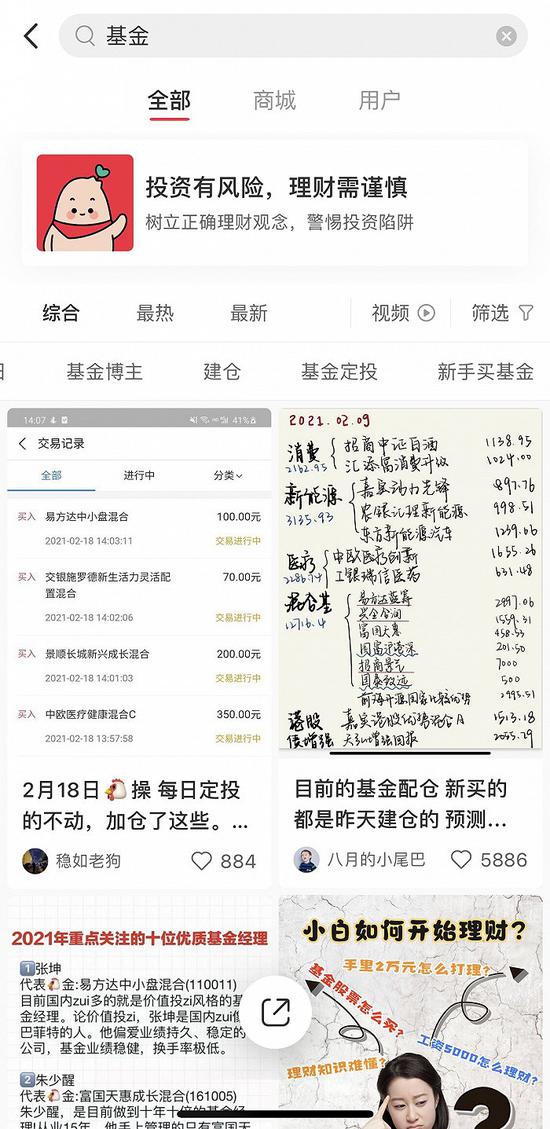 基金
全部
商城
用户
投资有风险，理财需谨慎
树立正确理财观念，警惕投资陷阱
综合
最热
最新
视频
筛选
基金博主
建仓
基金定投
新手买基金
14:07
41%
交易记录
全部
进行中
分类
买入 易方达中小盘混合 100.00元
2021-02-18 14:03:11 交易进行中
买入 交银施罗德新生活力灵活配 70.00元
置混合
2021-02-18 14:02:06 交易进行中
买入 景顺长城新兴成长混合 200.00元
2021-02-18 14:01:03 交易进行中
买入 中欧医疗健康混合C 350.00元
2021-02-18 13:57:58 交易进行中
2月18日🐔操 每日定投
的不动，加仓了这些。...
稳如老狗
884
2021.02.09
消费 招商中证白酒 1138.95
2162.95 汇添富消费升级 1024.00
新能源 嘉实动力先锋 897.76
3135.93 农银汇理新能源 998.51
东方新能源汽车 1239.66
医疗 中欧医疗创新 1655.26
工银瑞信医药 631.48
混合基 易方达蓝筹 2897.06
12716.4 兴全合润 1559.31
富国天惠 458.53
国富沪港深 201.50
招商景气 7000
国泰致远 500
2995.51
港股 嘉实港股优势混合A 1513.18
债增强
目前的基金配仓 新买的
都是昨天建仓的 预测...
八月的小尾巴
5886
2021年重点关注的十位优质基金经理
1 张坤
代表🐔金:易方达中小盘混合(110011)
目前国内zui多的就是价值投zi风格的基
金经理。论价值投zi，张坤是国内zui像
巴菲特的人。他偏爱业绩持久、稳定的
公司，基金业绩稳健，换手率极低。
2 朱少醒
代表🐔金:富国天惠成长混合(161005)
朱少醒，是目前做到十年十倍的基金经
小白如何开始理财?
手里2万元怎么打理?
基金股票怎么买?
工资5000怎么理财?
理财知识难懂?
?